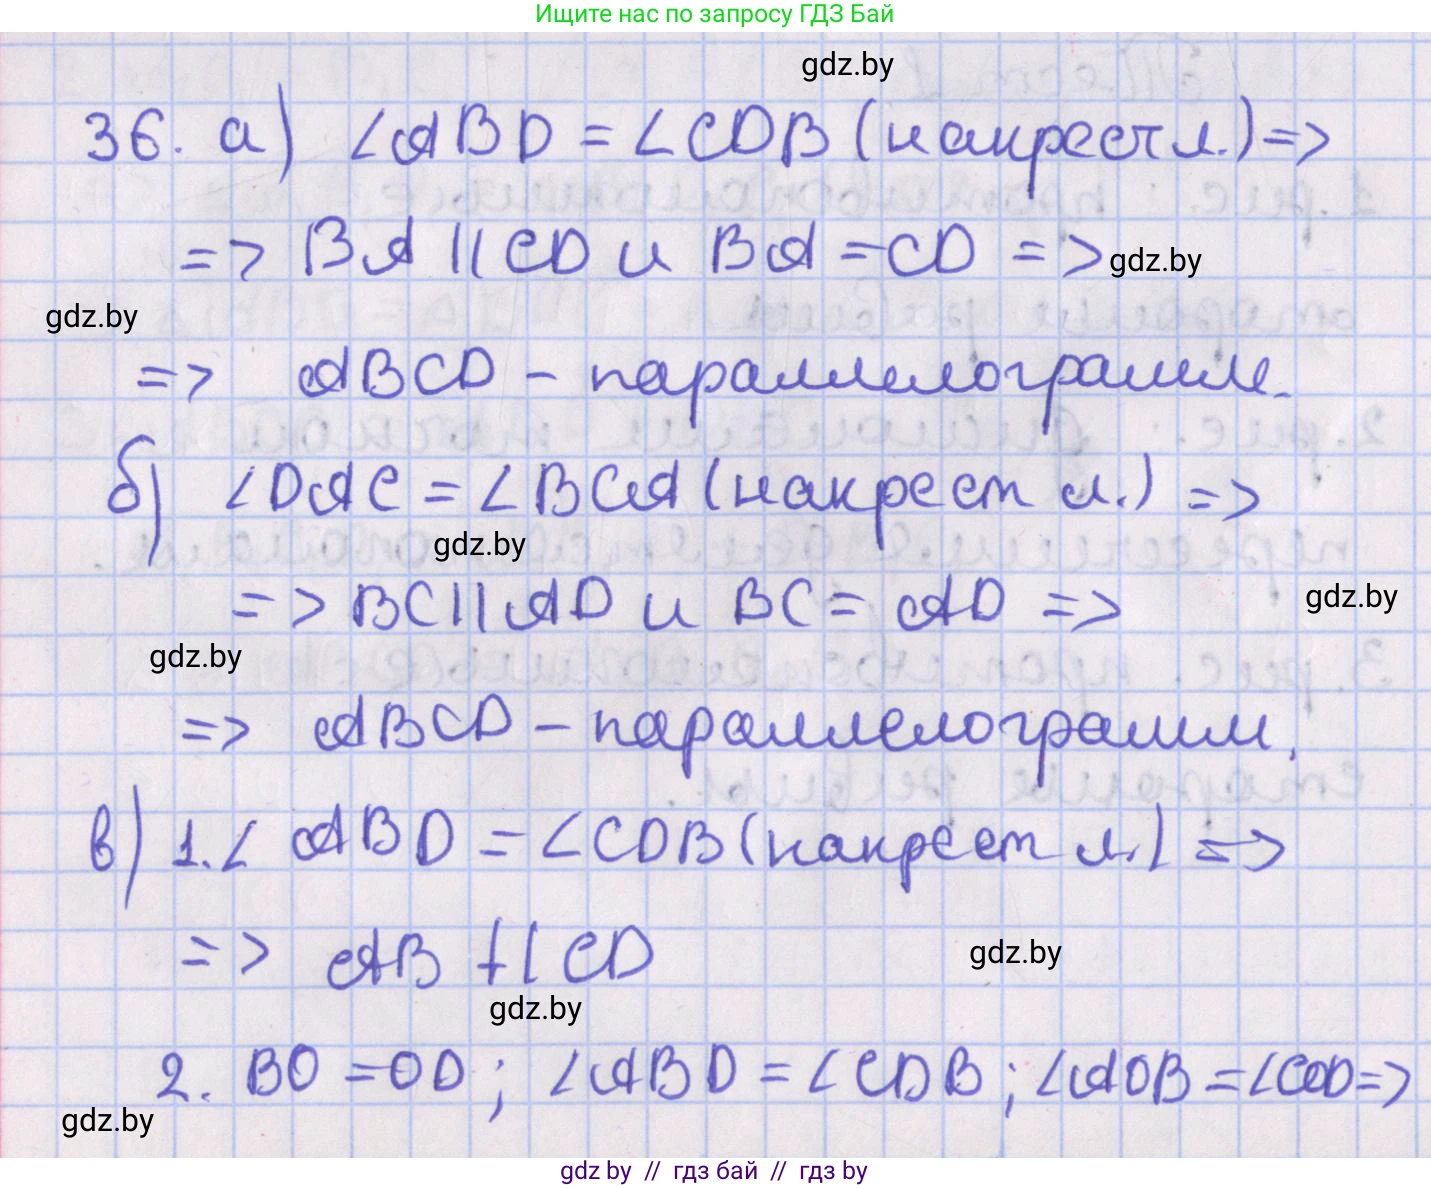 Ищите нас по запросу ГДЗ Бай
gdz.by
36. а) ∠ABD = ∠CDB (накрест л.) =>
=> BA || CD и BA = CD =>
gdz.by
gdz.by
=> ABCD - параллелограмм.
б) ∠DAC = ∠BCA (накрест л.) =>
gdz.by
=> BC || AD и BC = AD =>
gdz.by
gdz.by
=> ABCD - параллелограмм.
в) 1. ∠ABD = ∠CDB (накрест л.) =>
=> AB || CD
gdz.by
gdz.by
2. BO = OD; ∠ABD = ∠CDB; ∠AOB = ∠COD =>
gdz.by
gdz by // гдз бай // гдз by